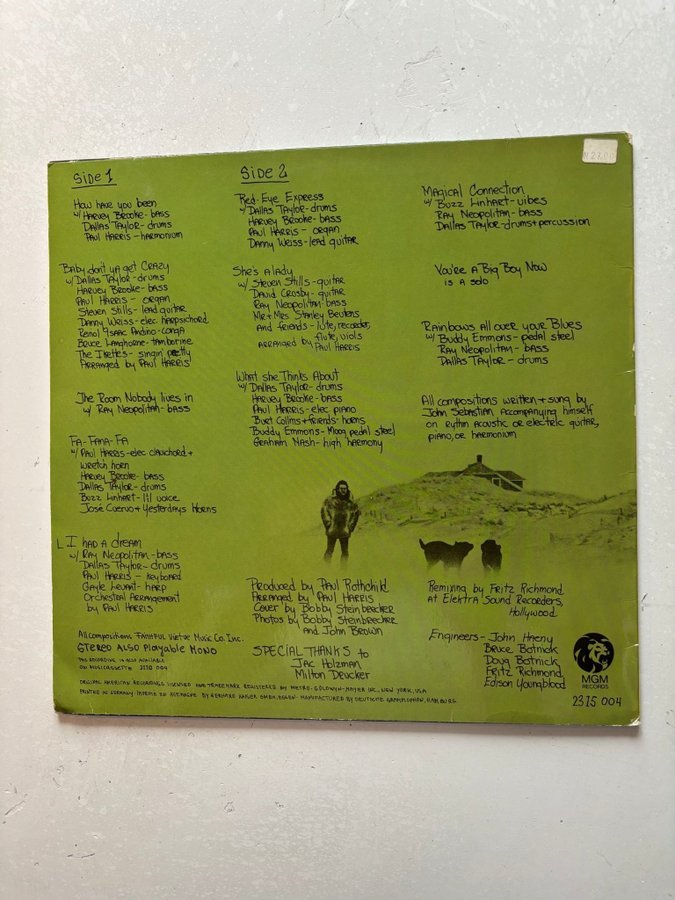 Side 1
How have you been
w/ Harvey Brooke - bass
Dallas Taylor - drums
Paul Harris - harmonium
Baby don't ya get Crazy
w/ Dallas Taylor - drums
Harvey Brooke - bass
Paul Harris - organ
Steven Stills - lead guitar
Danny Weiss - elec. harpsichord
Reno! Isaac Andino - conga
Bruce Langhorne - tamborine
The Ikettes - singin' pretty
Arranged by Paul Harris
The Room Nobody lives in
w/ Ray Neopolitan - bass
Fa-Fana-Fa
w/ Paul Harris - elec clavichord +
wretch horn
Harvey Brooke - bass
Dallas Taylor - drums
Buzz Linhart - lil voice
José Cuervo + Yesterdays Horns
I had a dream
w/ Ray Neopolitan - bass
Dallas Taylor - drums
Paul Harris - keyboard
Gayle Levant - harp
Orchestral Arrangement
by Paul Harris
All compositions Faithful Virtue Music Co. Inc.
Stereo Also Playable Mono
This recording is also available
on Musicassette 3110 004
Original American recordings licensed and trademark registered by Metro-Goldwyn-Mayer Inc., New York, USA
Printed in Germany by Gerhard Kaiser GmbH, Essen - Manufactured by Deutsche Grammophon, Hamburg
Side 2
Red-Eye Express
w/ Dallas Taylor - drums
Harvey Brooke - bass
Paul Harris - organ
Danny Weiss - lead guitar
She's a lady
w/ Steven Stills - guitar
David Crosby - guitar
Ray Neopolitan - bass
Mr + Mrs Stanley Beutens
and friends - lute, recorder,
flute, viols
arranged by Paul Harris
What she Thinks About
w/ Dallas Taylor - drums
Harvey Brooke - bass
Paul Harris - elec piano
Burt Collins + friends - horns
Buddy Emmons - Moog pedal steel
Graham Nash - high harmony
Magical Connection
w/ Buzz Linhart - vibes
Ray Neopolitan - bass
Dallas Taylor - drums + percussion
You're A Big Boy Now
is a solo
Rainbows All over your Blues
w/ Buddy Emmons - pedal steel
Ray Neopolitan - bass
Dallas Taylor - drums
All compositions written + sung by
John Sebastian Accompanying himself
on rythm acoustic or electric guitar,
piano, or harmonium
Produced by Paul Rothchild
Arranged by Paul Harris
Cover by Bobby Steinbrecker
Photos by Bobby Steinbrecker
and John Brown
SPECIAL THANKS to
Jac Holzman
Milton Deucker
Remixing by Fritz Richmond
at Elektra Sound Recorders,
Hollywood
Engineers - John Haeny
Bruce Botnick
Doug Botnick
Fritz Richmond
Edison Youngblood
MGM
RECORDS
2315 004